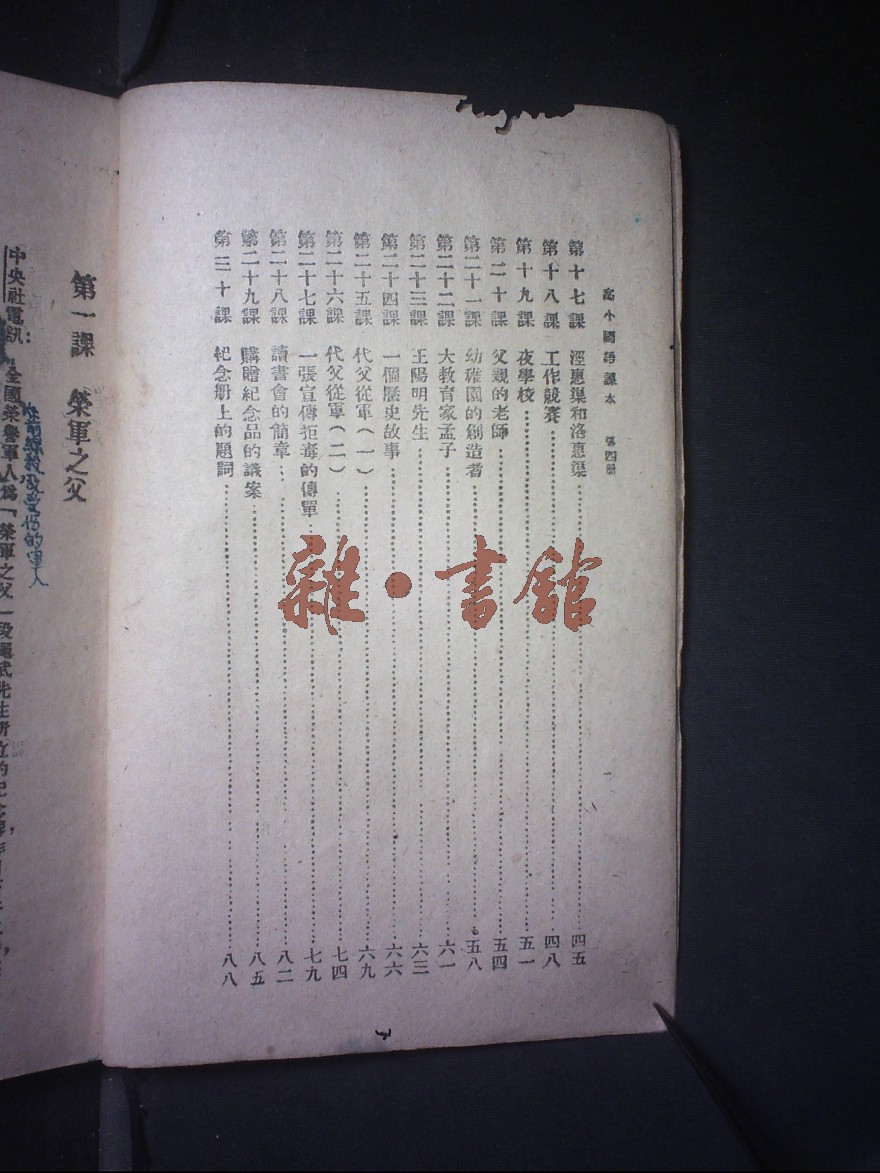 高小國語課本　第四冊
第十七課　涇惠渠和洛惠渠……四五
第十八課　工作競賽……四八
第十九課　夜學校……五一
第二十課　父親的老師……五四
第二十一課　幼稚園的創造者……五八
第二十二課　大教育家孟子……六一
第二十三課　王陽明先生……六三
第二十四課　一個歷史故事……六六
第二十五課　代父從軍（一）……六九
第二十六課　代父從軍（二）……七四
第二十七課　一張宣傳拒毒的傳單……七九
第二十八課　讀書會的簡章……八二
第二十九課　購贈紀念品的議案……八五
第三十課　紀念册上的題詞……八八
雜·書館
第一課　榮軍之父
中央社電訊：全國榮譽軍人爲「榮軍之父」段繩武先生所立的紀念
在前線
受傷的軍人